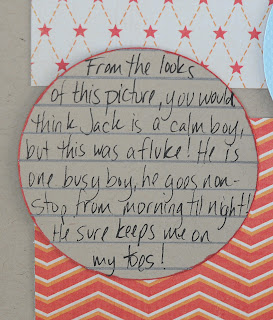 From the looks
of this picture, you would
think Jack is a calm boy,
but this was a fluke! He is
one busy boy, he goes non-
stop from morning til night!
He sure keeps me on
my toes!